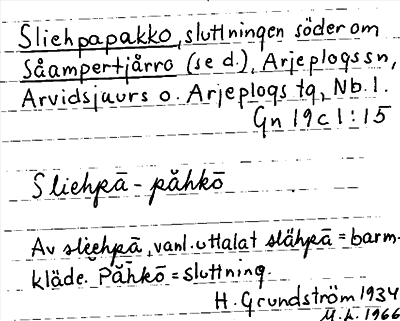 Sliehpapakko, sluttningen söder om
Såampertjårro (se d.), Arjeplogssn,
Arvidsjaurs o. Arjeplogs tg, Nb.l.
Gn 19 c 1:15
Sliehpā - påhkō
Av slēehpā, vanl. uttalat slähpā = barm-
kläde. Påhkō = sluttning.
H. Grundström 1934
M.h. 1966